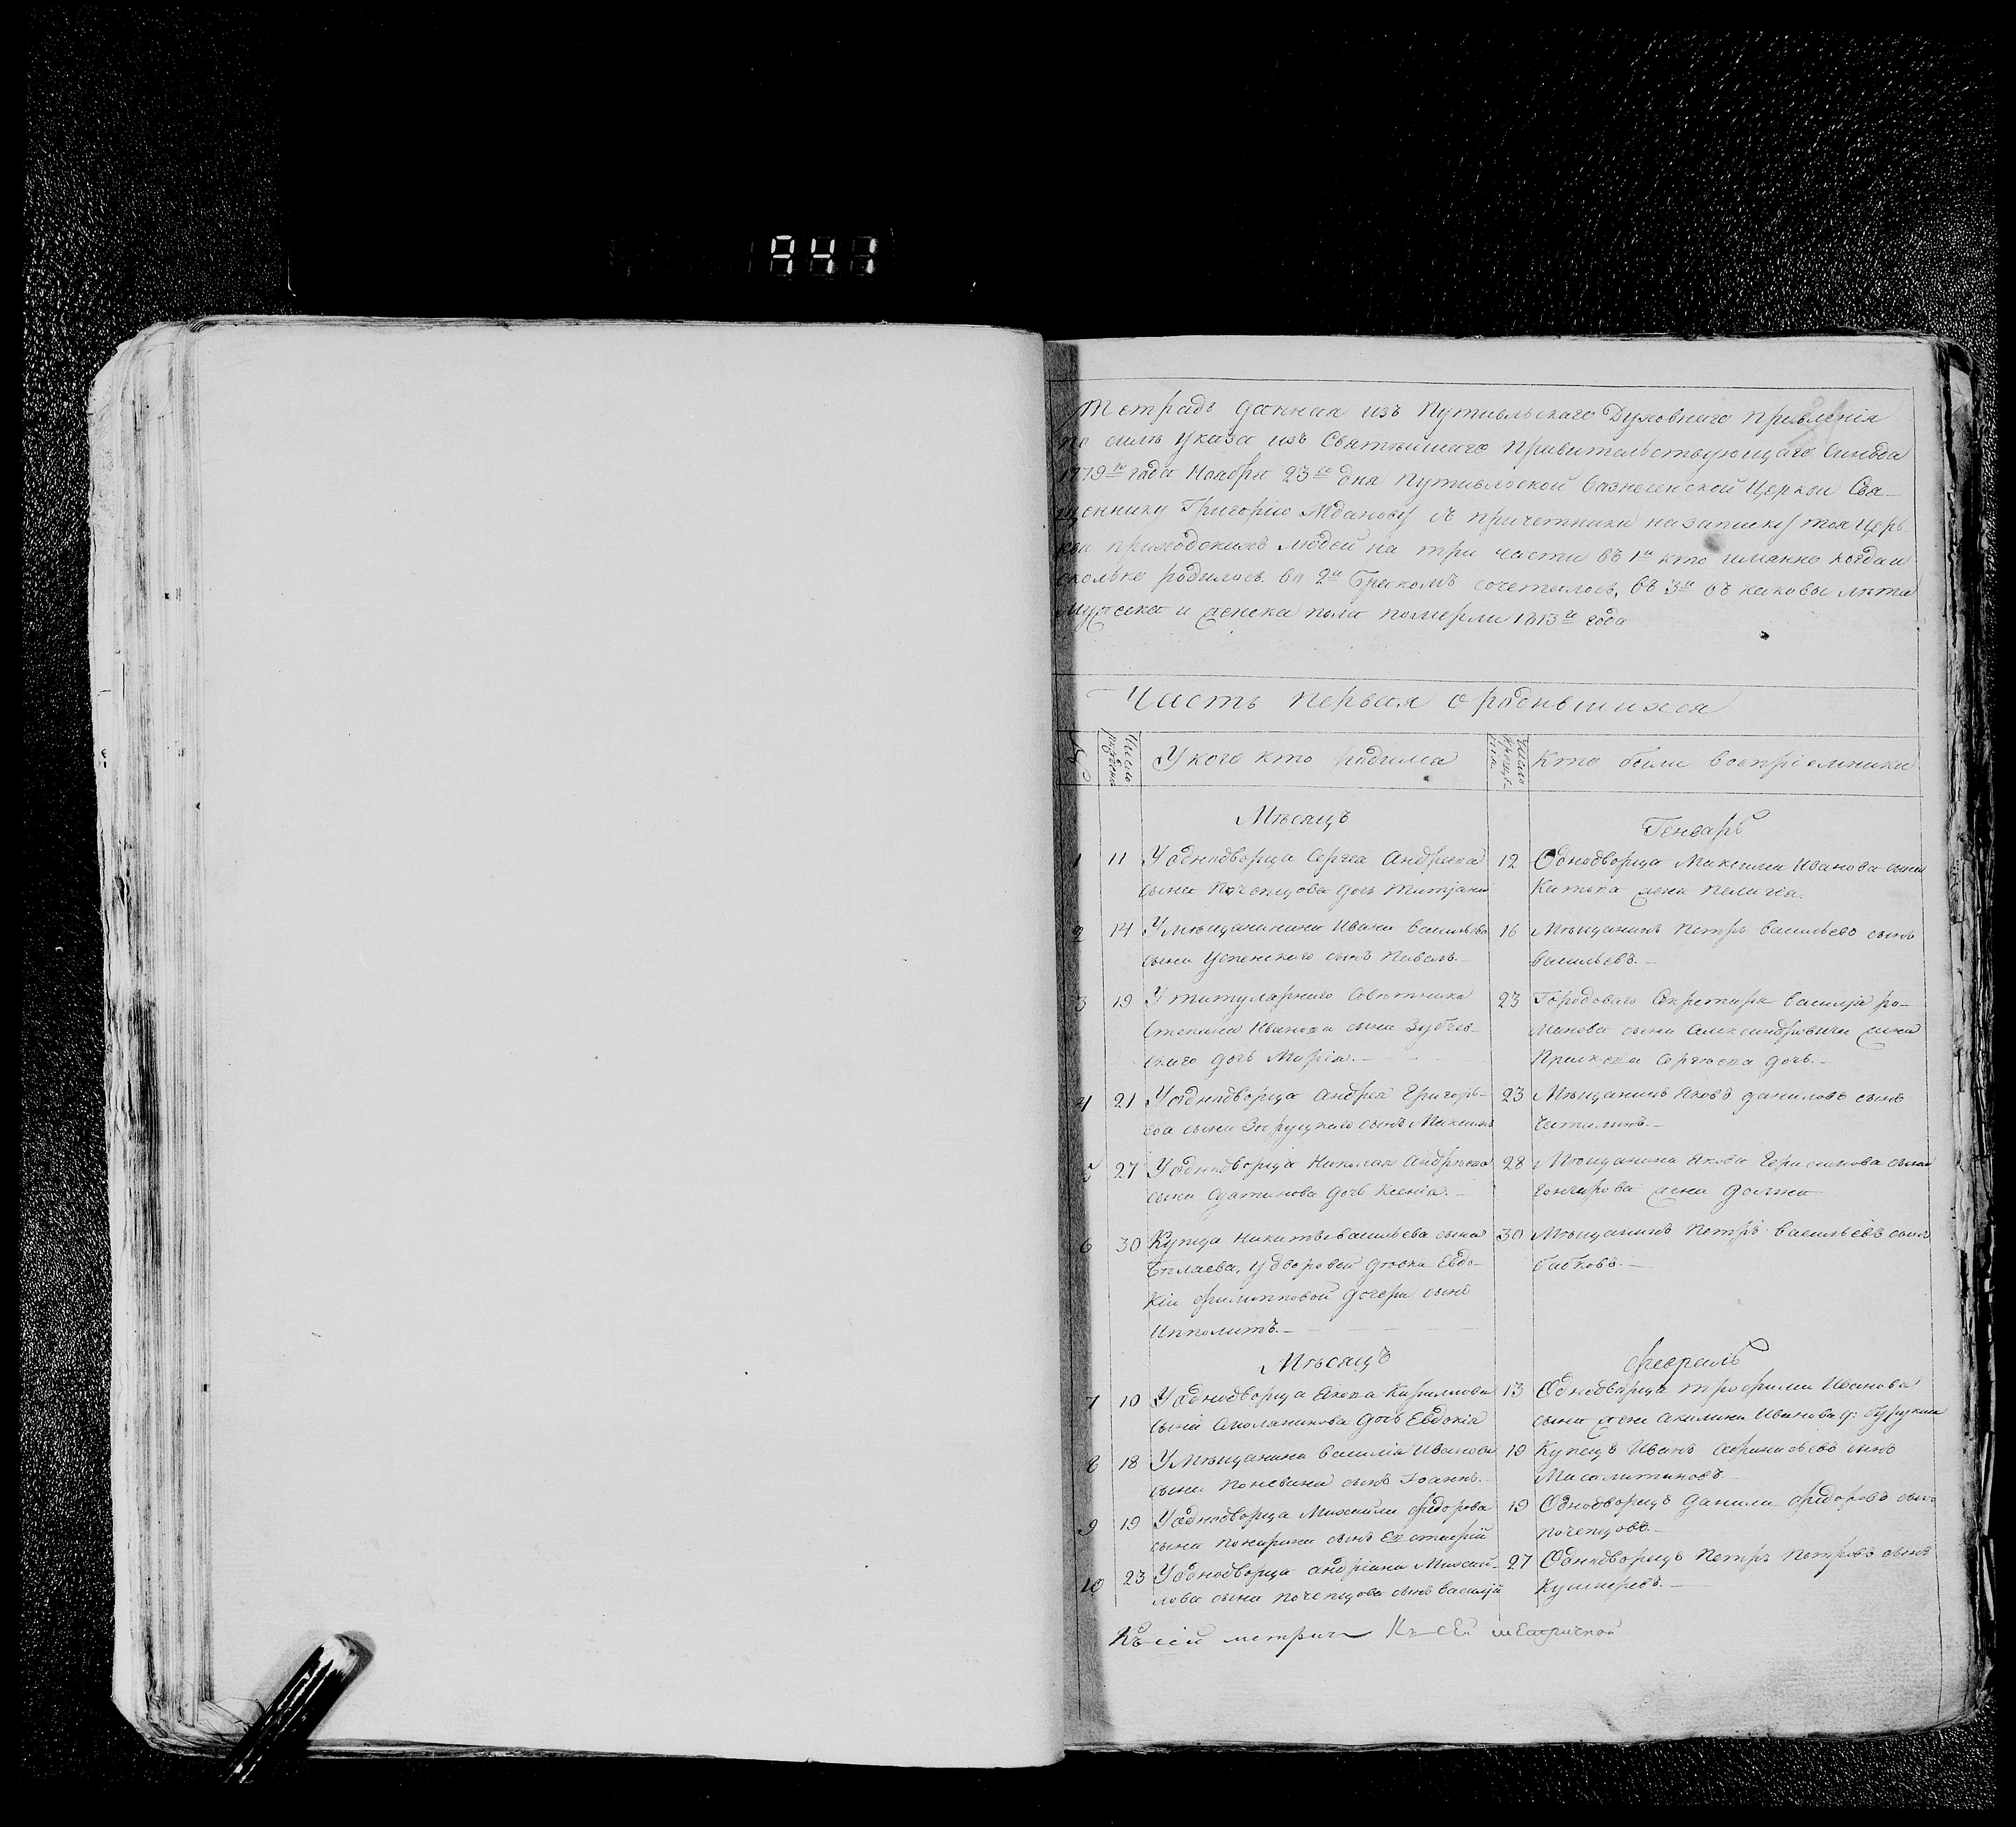 941
Тетрадь данная изъ Путивльскаго Духовнаго правленія
по силѣ указа изъ Святѣйшаго Правительствующаго Синода
1779го года Ноября 23го дня Путивльской Вознесенской Церкви Свя-
щеннику Григорію Жданову съ причетники на записку тоя Церк
ви приходскихъ людей на три части въ 1й кто имянно когда и
сколько родилось. во 2й Бракомъ сочеталось, въ 3й въ каковы лѣта
мужеска и женска пола померли 1813го года
Часть Первая о родившихся
Число рожденія
У кого кто родился
Число крещенія
Кто были воспріемники
Мѣсяцъ
Генварь
1 11 У однодворца Сергея Андреева 12 Однодворца Максима Иванова сына
сына Почепцова дочь Татіана
жена Пелагія.
2 14 У мѣщанина Ивана Васильева 16 Мѣщанинъ Петръ Васильевъ сынъ
сына Успенского сынъ Павелъ.
Васильевъ.
3 19 У титулярнаго Совѣтника 23 Городоваго Секретаря Василія Ро-
Степана Иванова сына Зубчев-
манова сына Александровича жена
скаго дочь Марія.
Сергѣева дочь.
4 21 У однодворца Андрея Григорь- 23 Мѣщанинъ Яковъ Даниловъ сынъ
ева сына сынъ Максимъ
5 27 У однодворца Николая Андрѣева 28 Мѣщанина Якова Герасимова сына
сына дочь Ксенія.
Гончарова жена Домна
6 30 Купца Никиты Васильева сына 30 Мѣщанинъ Петръ Васильевъ сынъ
Бѣляева, у дворовой дѣвки Евдо-
Бабковъ.
кіи Филипповой дочери сынъ
Ипполитъ.
Мѣсяцъ
Февраль
7 10 У однодворца Якова Кирилова 13 Однодворца Трофима Иванова
сына дочь Евдокія
сына жена Акилина Иванова д:
8 18 У Мѣщанина Василія Иванова 19 Купецъ Иванъ Афанасьевъ сынъ
сына сынъ Іоаннъ.
Масалитиновъ
9 19 У однодворца Михаила Федорова 19 Однодворецъ Данила Федоровъ сынъ
сына сынъ Евстафій
Почепцовъ.
10 23 У однодворца Андріана Михай- 27 Однодворецъ Петръ Петровъ сынъ
лова сына Почепцова сынъ Василій
Кушнеревъ.
Къ сей метрич Къ сей метричной